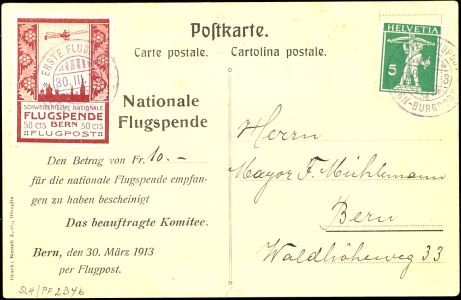 Postkarte.
Carte postale. - Cartolina postale.
ERSTE FLUG
30. III.
SCHWEIZERISCHE NATIONALE
FLUGSPENDE
50 CTS BERN 50 CTS
FLUGPOST
HELVETIA
5
Nationale
Flugspende
Den Betrag von Fr. 10.—
für die nationale Flugspende empfan-
gen zu haben bescheinigt
Das beauftragte Komitee.
Bern, den 30. März 1913
per Flugpost.
Herrn
Mayor F. Mühlemann
Bern
Waldhöheweg 33
SLH/PF 2.34b